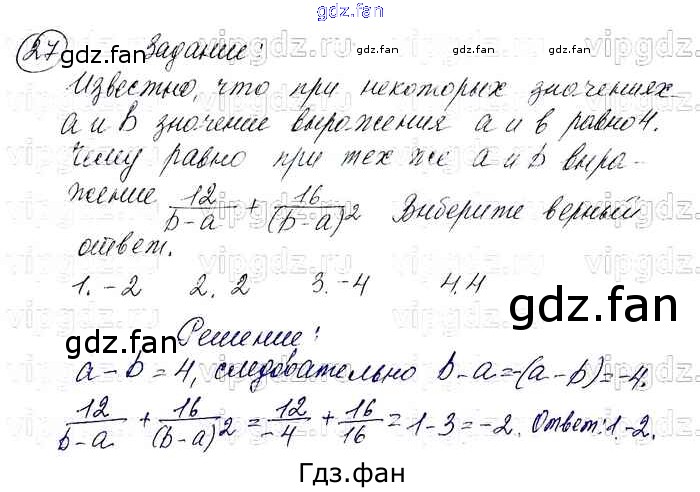 gdz.fan
27 Задание:
Известно, что при некоторых значениях
a и b значение выражения a и b равно 4.
Чему равно при тех же a и b выра-
жение 12/(b-a) + 16/(b-a)2 Выберите верный
ответ.
1. -2 2. 2 3. -4 4. 4
gdz.fan
Решение:
a-b=4, следовательно b-a=-(a-b)=-4.
12/(b-a) + 16/(b-a)2 = 12/-4 + 16/16 = 1-3=-2. Ответ: 1. -2.
Гдз.фан